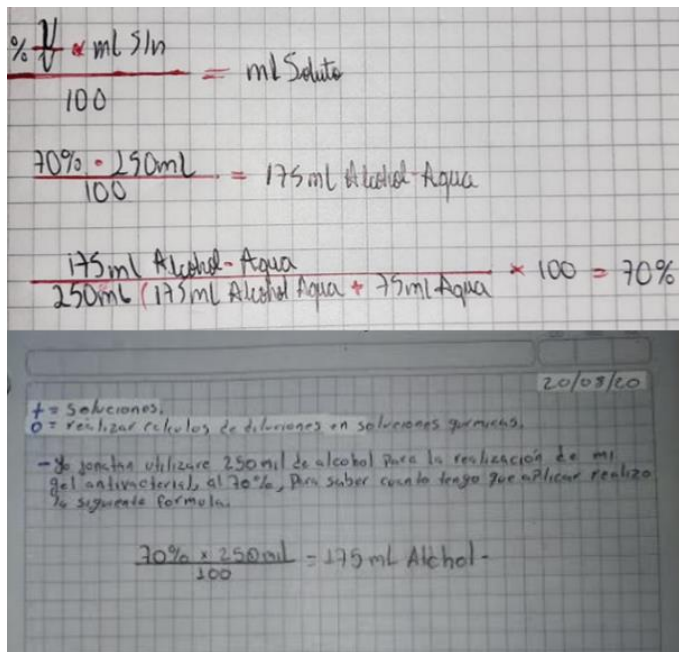 % V/V • ml Sln
100
= ml Soluto
70% • 250mL
100
= 175ml Alcohol-Agua
175ml Alcohol-Agua
250mL (175ml Alcohol Agua + 75ml Agua
× 100 = 70%
20/08/20
t = Soluciones.
O = realizar calculos de diluciones en soluciones quimicas.
- Yo jonatan utilizare 250ml de alcohol Para la realización de mi
gel antivacterial, al 70%, Para saber cuanto tengo que aplicar realizo
la siguiente formula.
70% × 250ml
100
= 175mL Alchol -